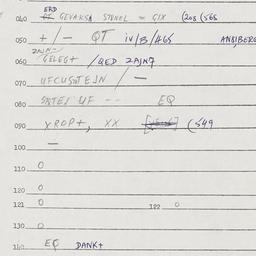 ERD
040 GEVAKSA STENEL = GIX (203 (565
050 + / - QT iv/B/465 ANSIBERG
ZAJN-
060 GELEGT / QED ZAJN7
070 UFCUSSTEJN / —
080 SNTEJ UF -- EQ
090 XROP+, XX (549
100 —
110 O
120 O
121 O 122 O
130 O
140 EQ DANK+